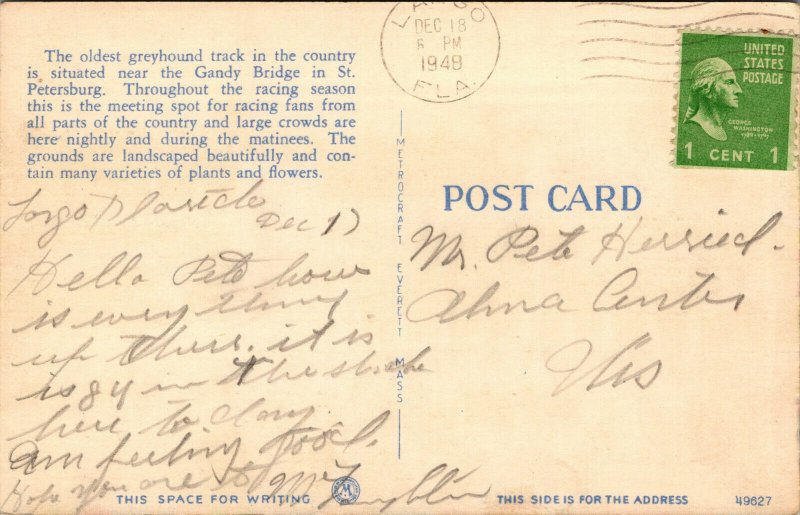 The oldest greyhound track in the country
is situated near the Gandy Bridge in St.
Petersburg. Throughout the racing season
this is the meeting spot for racing fans from
all parts of the country and large crowds are
here nightly and during the matinees. The
grounds are landscaped beautifully and con-
tain many varieties of plants and flowers.
Largo
Dec 17
Hello Pete how
is everything
up there. it is
is 84 in the shade
here to day
am feeling good.
Hope you are to
McLaughlin
THIS SPACE FOR WRITING
METROCRAFT EVERETT MASS
LARGO
DEC 18
6 PM
1948
FLA.
UNITED
STATES
POSTAGE
GEORGE
WASHINGTON
1789-1797
1 CENT 1
POST CARD
Mr. Pete Herried.
Alma Center
Wis
THIS SIDE IS FOR THE ADDRESS
49627